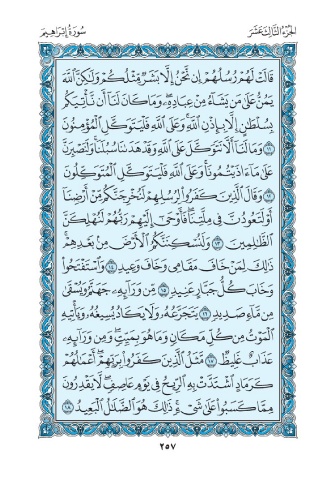 الجزء الثالث عشر
سورة إبراهيم
قَالَتْ لَهُمْ رُسُلُهُمْ إِن نَّحْنُ إِلَّا بَشَرٌ مِّثْلُكُمْ وَلَٰكِنَّ ٱللَّهَ
يَمُنُّ عَلَىٰ مَن يَشَآءُ مِنْ عِبَادِهِۦ ۖ وَمَا كَانَ لَنَآ أَن نَّأْتِيَكُم
بِسُلْطَٰنٍ إِلَّا بِإِذْنِ ٱللَّهِ ۚ وَعَلَى ٱللَّهِ فَلْيَتَوَكَّلِ ٱلْمُؤْمِنُونَ
١١ وَمَا لَنَآ أَلَّا نَتَوَكَّلَ عَلَى ٱللَّهِ وَقَدْ هَدَىٰنَا سُبُلَنَا ۚ وَلَنَصْبِرَنَّ
عَلَىٰ مَآ ءَاذَيْتُمُونَا ۚ وَعَلَى ٱللَّهِ فَلْيَتَوَكَّلِ ٱلْمُتَوَكِّلُونَ
١٢ وَقَالَ ٱلَّذِينَ كَفَرُوا۟ لِرُسُلِهِمْ لَنُخْرِجَنَّكُم مِّنْ أَرْضِنَآ
أَوْ لَتَعُودُنَّ فِى مِلَّتِنَا ۖ فَأَوْحَىٰٓ إِلَيْهِمْ رَبُّهُمْ لَنُهْلِكَنَّ
ٱلظَّٰلِمِينَ ١٣ وَلَنُسْكِنَنَّكُمُ ٱلْأَرْضَ مِنۢ بَعْدِهِمْ ۚ
ذَٰلِكَ لِمَنْ خَافَ مَقَامِى وَخَافَ وَعِيدِ ١٤ وَٱسْتَفْتَحُوا۟
وَخَابَ كُلُّ جَبَّارٍ عَنِيدٍ ١٥ مِّن وَرَآئِهِۦ جَهَنَّمُ وَيُسْقَىٰ
مِن مَّآءٍ صَدِيدٍ ١٦ يَتَجَرَّعُهُۥ وَلَا يَكَادُ يُسِيغُهُۥ وَيَأْتِيهِ
ٱلْمَوْتُ مِن كُلِّ مَكَانٍ وَمَا هُوَ بِمَيِّتٍ ۖ وَمِن وَرَآئِهِۦ
عَذَابٌ غَلِيظٌ ١٧ مَّثَلُ ٱلَّذِينَ كَفَرُوا۟ بِرَبِّهِمْ ۖ أَعْمَٰلُهُمْ
كَرَمَادٍ ٱشْتَدَّتْ بِهِ ٱلرِّيحُ فِى يَوْمٍ عَاصِفٍ ۖ لَّا يَقْدِرُونَ
مِمَّا كَسَبُوا۟ عَلَىٰ شَىْءٍ ۚ ذَٰلِكَ هُوَ ٱلضَّلَٰلُ ٱلْبَعِيدُ ١٨
٢٥٧